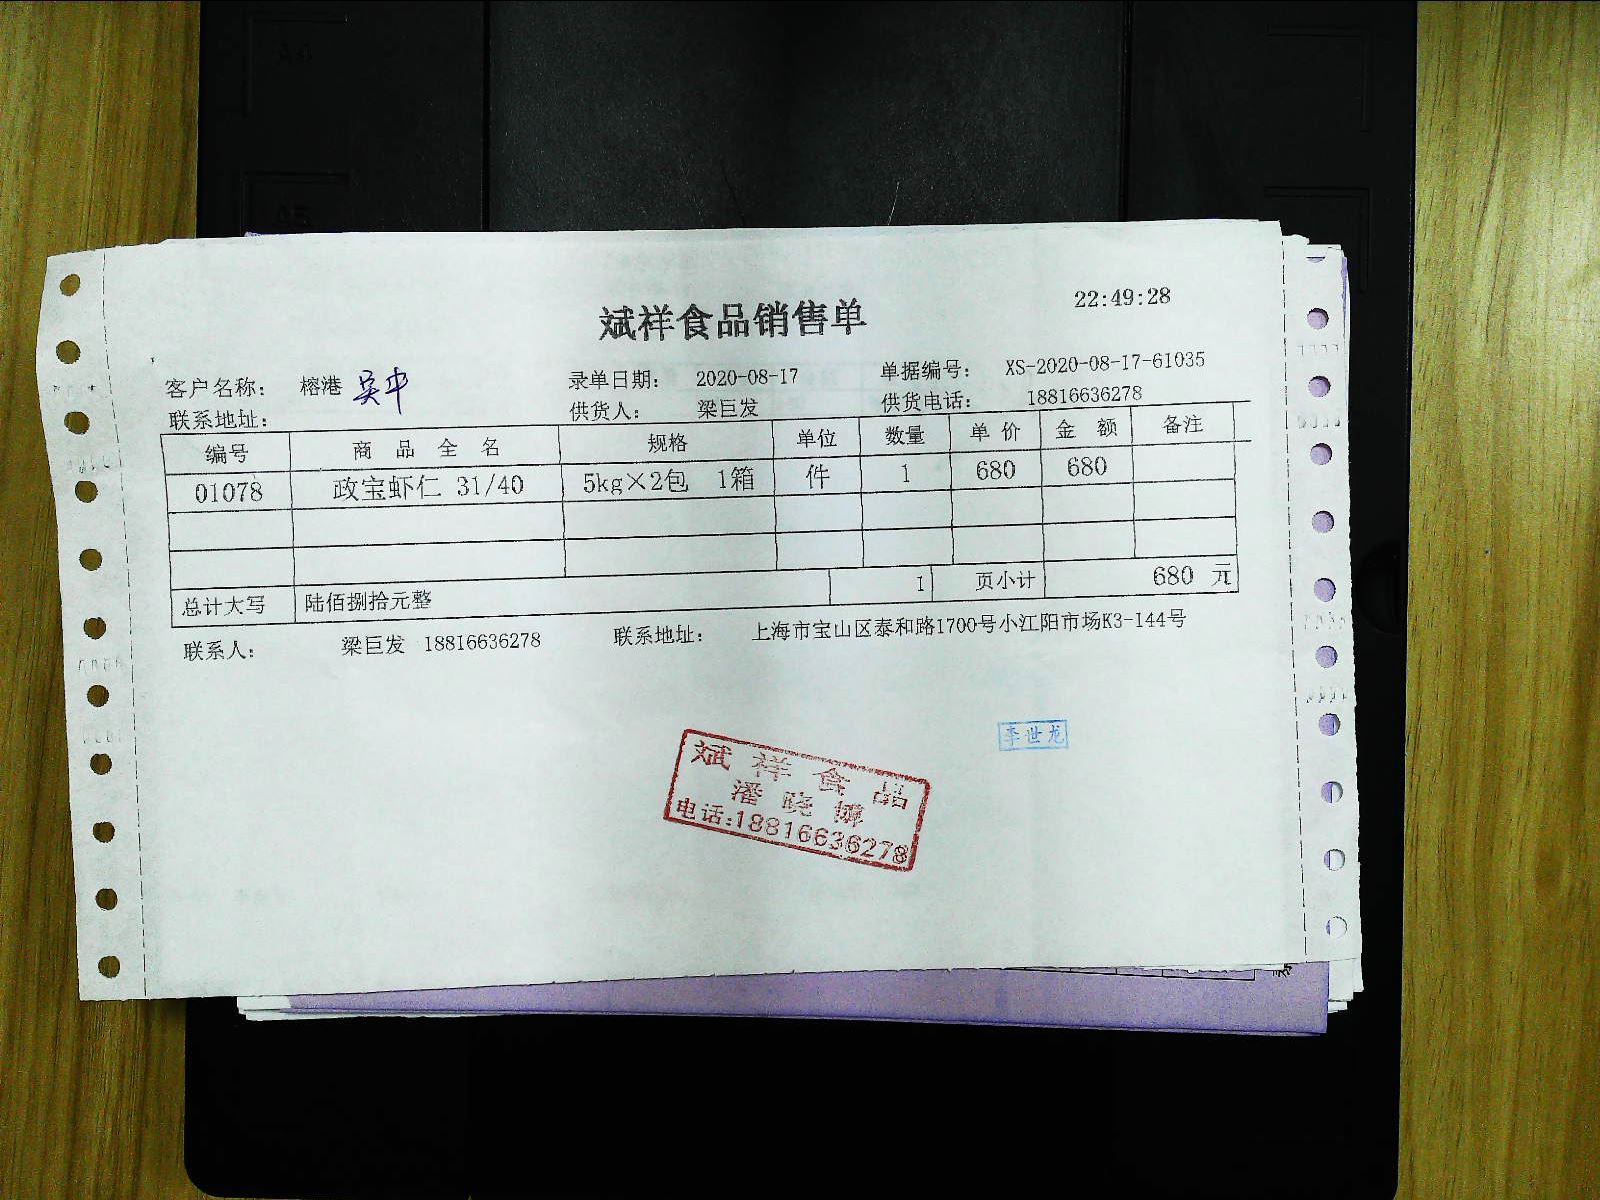 22:49:28
斌祥食品销售单
客户名称： 榕港 吴中 录单日期： 2020-08-17 单据编号： XS-2020-08-17-61035
联系地址： 供货人： 梁巨发 供货电话： 18816636278
编号 商品全名 规格 单位 数量 单价 金额 备注
01078 政宝虾仁 31/40 5kg×2包 1箱 件 1 680 680
总计大写 陆佰捌拾元整 1 页小计 680 元
联系人： 梁巨发 18816636278 联系地址： 上海市宝山区泰和路1700号小江阳市场K3-144号
李世龙
斌祥食品
潘晓
电话:18816636278